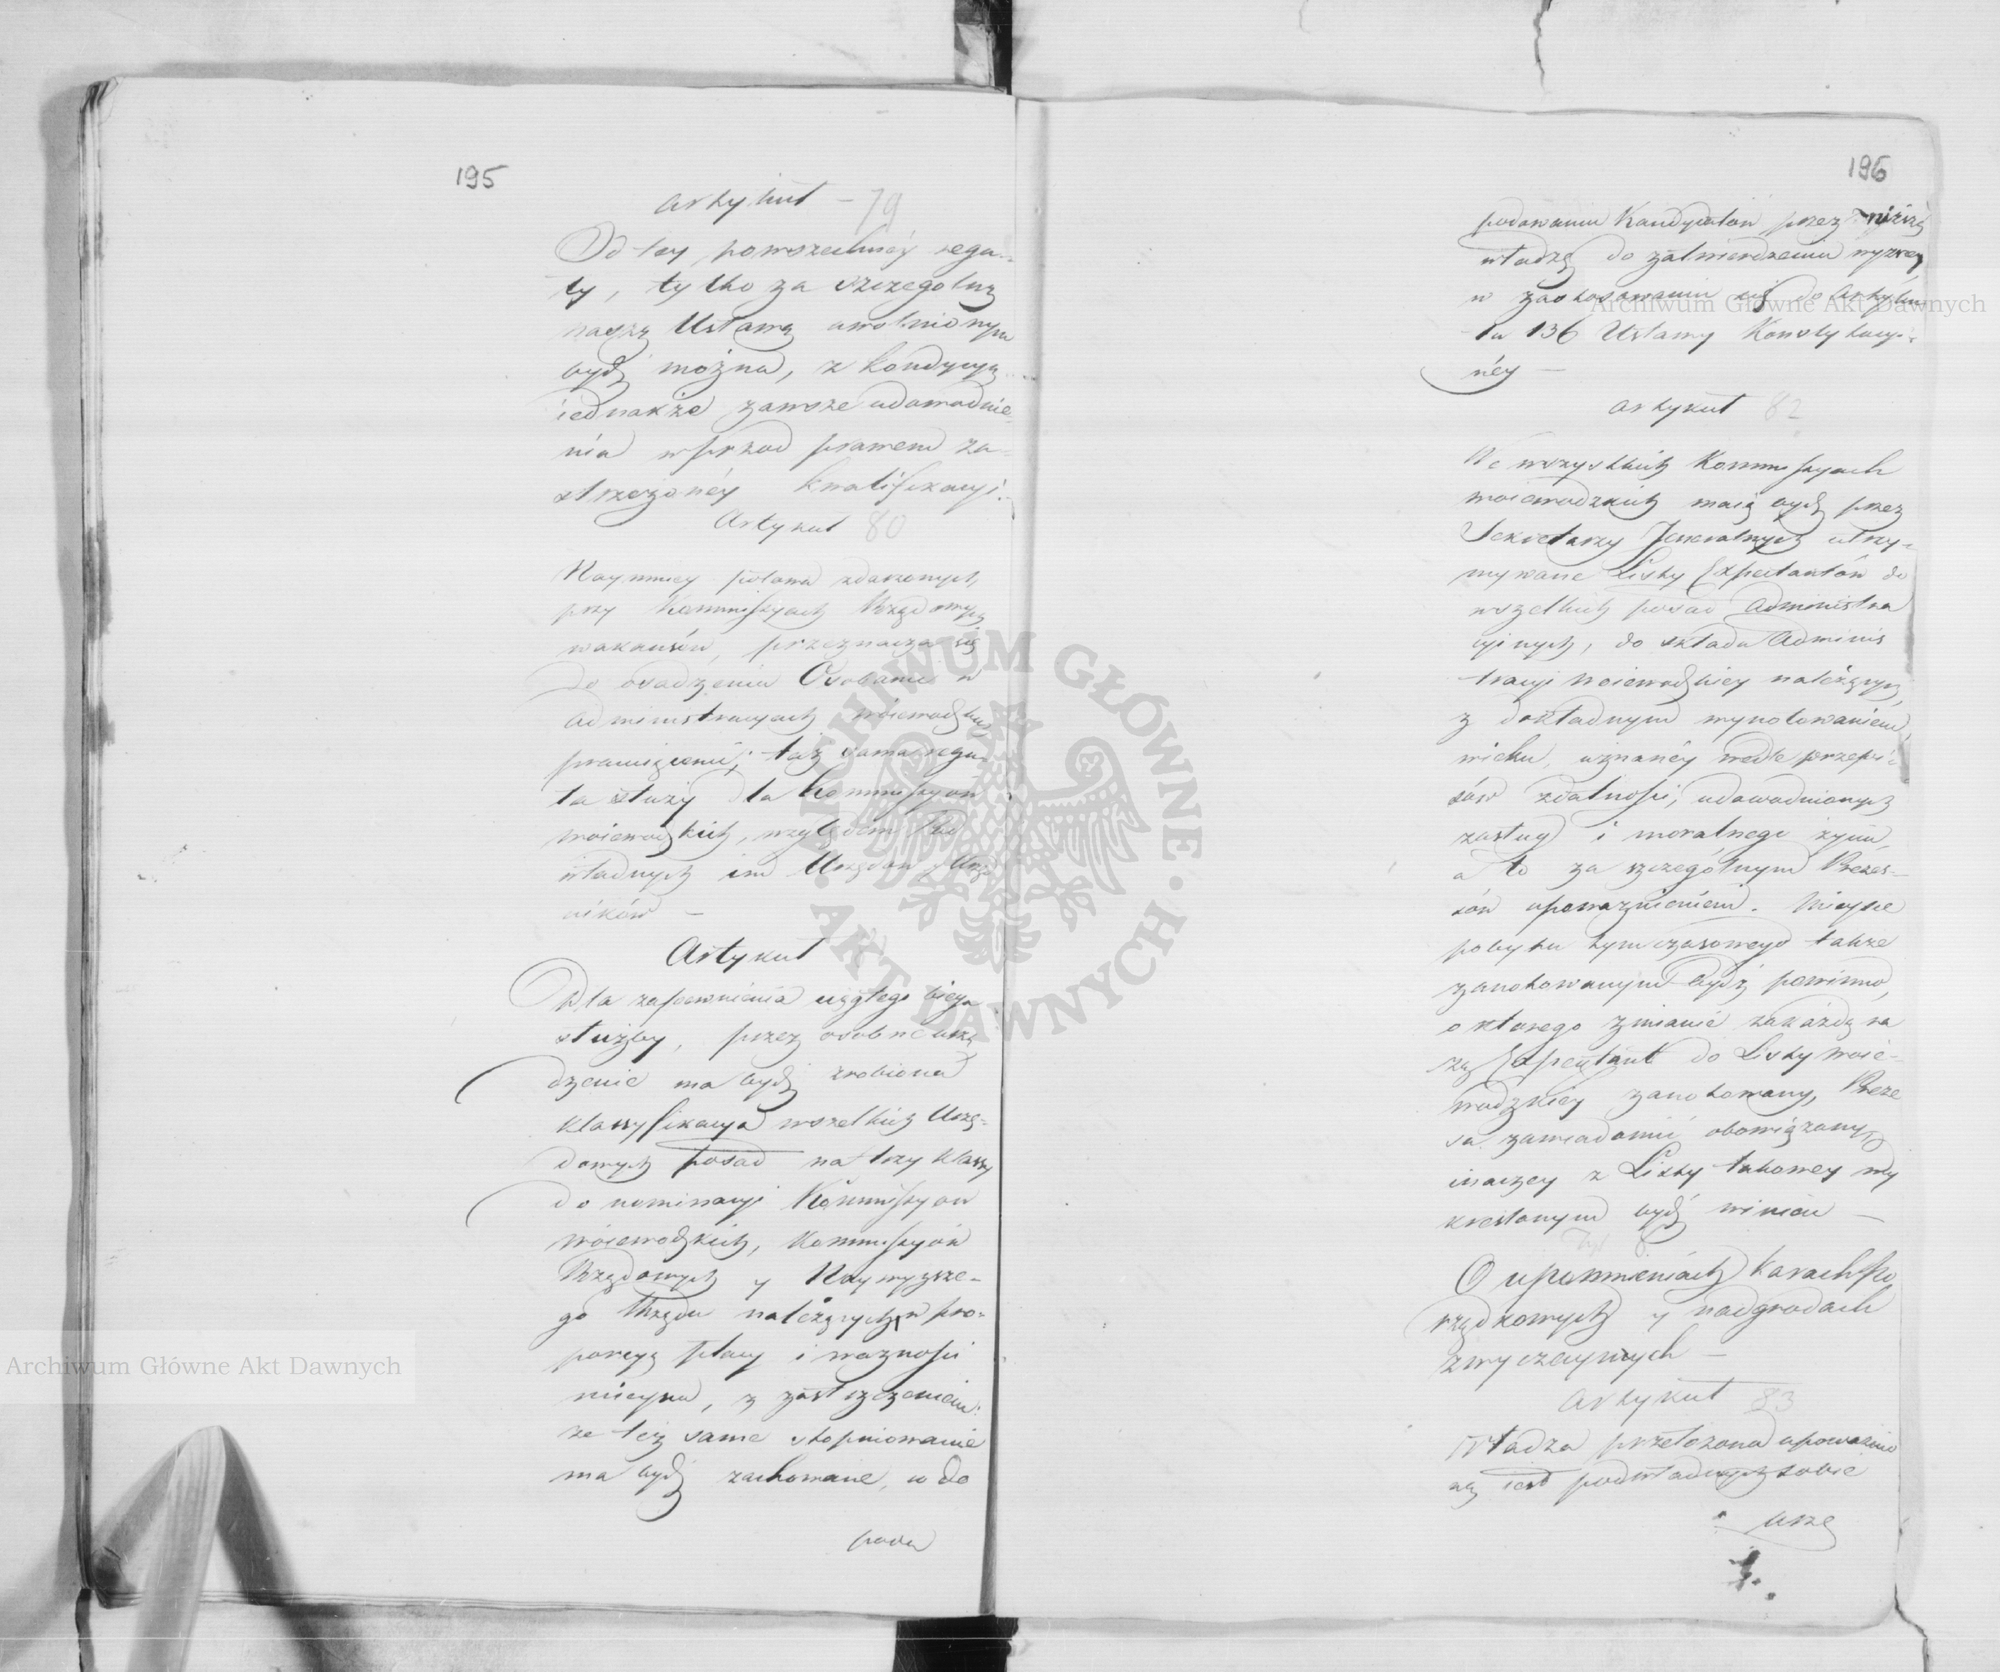 195
Artykuł – 79
Od tey powszechnéy regu-
ły, tylko za szczegolną
naszą Ustawą uwolnionym
bydź można, z kondycyą
iednakże zawsze udowodnie-
nia wprzod prawem za-
strzeżonéy kwalifikacyi.
Artykuł 80
Naymniey połowa zdarzonych
przy Kommissyach Rządowych
wakansów, przeznacza się
do osadzenia Osobami w
administracyach woiewodzkich
pracuiącemi; taż sama regu-
ła służy dla Kommissyow
woiewodzkich, względem Pod
władnych im Urzędow y Urzę
ników –
Artykuł
Dla zapewnienia ciągłego biegu
służby, przez osobne urzą
dzenie ma bydź zrobiona
klassyfikacya wszelkich Urzę-
dowych posad na trzy klassy
do nominacyi Kommissyow
woiewodzkich, Kommissyów
Rządowych y Naywyższe-
go Urzędu należących w pro-
porcyą płacy i ważności
mieysca, z zastrzeżeniem:
że też same stopniowanie
ma bydź zachowane, w do
poda
196
podawaniu Kandydatów przez niższą
władzę do zatwierdzenia wyższey,
w zastosowaniu się do Artyku-
łu 136 Ustawy Konstytucyi-
néy –
Artykuł 82
We wszystkich Kommissyach
woiewodzkich maią bydź przez
Sekretarzy Jeneralnych utrzy-
mywane Listy Expektantów do
wszelkich posad Administra
cyinych, do składu Adminis
tracyi Woiewodzkiey należących,
z dokładnym wynotowaniem,
wieku, uznanéy wedle przepi-
sów zdatności, udowodnionych
zasług i moralnego życia,
a to za szczególnym Prezes-
sów upoważnieniem. Mieysce
pobytu tymczasowego także
zanotowanym bydź powinno,
o którego zmianie za każdą ra
zą Expektant do Listy woie-
wodzkiey zanotowany, Preze
sa zawiadomić obowiązany,
inaczey z Listy takowey wy
kreslonym bydź winien –
O upomnieniach karach Po
rządkowych y nadgrodach
zwyczaynych –
Artykuł 83
Władza przełożona upoważnio
ną iest podwładnych sobie
urzę
Archiwum Główne Akt Dawnych
Archiwum Główne Akt Dawnych
ARCHIWUM GŁÓWNE · AKT DAWNYCH ·